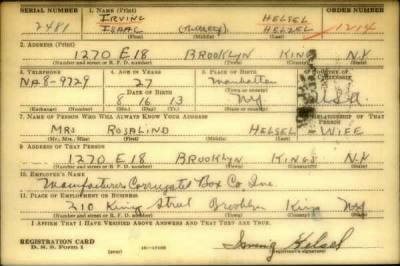 SERIAL NUMBER 1. NAME (Print) ORDER NUMBER
IRVING HELSEL
2481 ISAAC HELZEL 1214
(First) (Middle) (Last)
2. ADDRESS (Print)
1270 E18 BROOKLYN KINGS N.Y.
(Number and street or R. F. D. number) (Town) (County) (State)
3. TELEPHONE 4. AGE IN YEARS 5. PLACE OF BIRTH 6. COUNTRY OF CITIZENSHIP
NA8-9729 27 Manhattan
DATE OF BIRTH (Town or county)
8 16 13 NY U.S.A.
(Exchange) (Number) (Mo.) (Day) (Yr.) (State or country)
7. NAME OF PERSON WHO WILL ALWAYS KNOW YOUR ADDRESS 8. RELATIONSHIP OF THAT PERSON
MRS ROSALIND HELSEL WIFE
(Mr., Mrs., Miss) (First) (Middle) (Last)
9. ADDRESS OF THAT PERSON
1270 E18 BROOKLYN KINGS N.Y.
(Number and street or R. F. D. number) (Town) (County) (State)
10. EMPLOYER'S NAME
Manufacturers Corrugated Box Co Inc.
11. PLACE OF EMPLOYMENT OR BUSINESS
210 King Street Brooklyn Kings NY
(Number and street or R. F. D. number) (Town) (County) (State)
I AFFIRM THAT I HAVE VERIFIED ABOVE ANSWERS AND THAT THEY ARE TRUE.
REGISTRATION CARD
D. S. S. Form 1 Irving Helsel